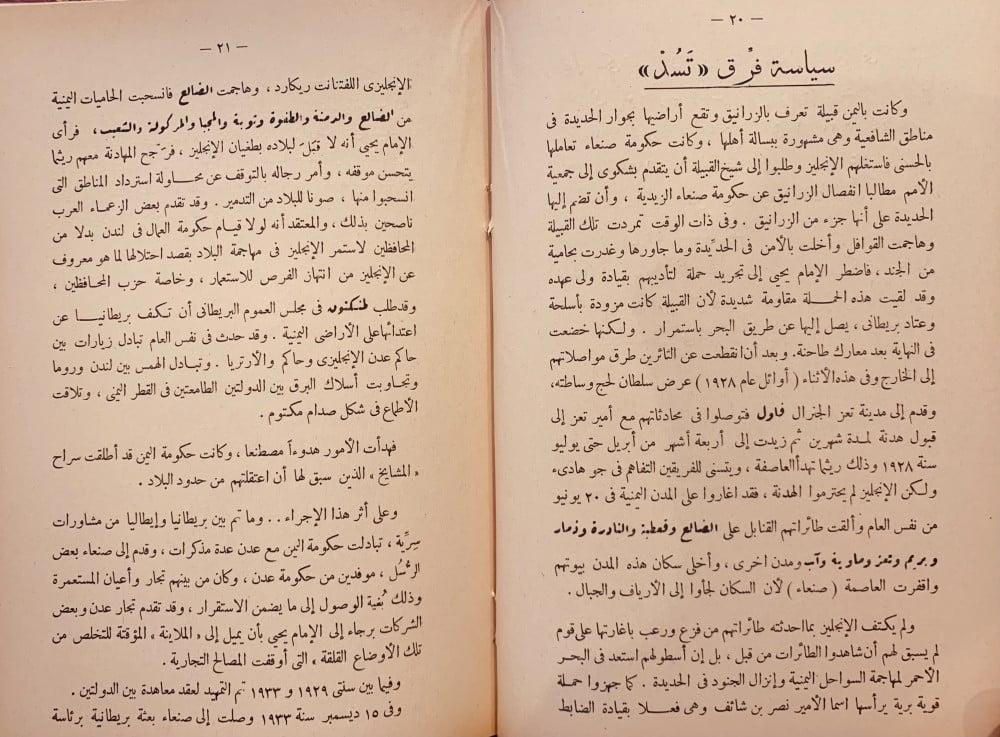 — ٢٠ —
سياسة فرّق «تَسُدْ»
وكانت باليمن قبيلة تعرف بالزرانيق وتقع أراضيها بجوار الحديدة فى
مناطق الشافعية وهى مشهورة ببسالة أهلها ، وكانت حكومة صنعاء تعاملها
بالحسنى فاستغلهم الإنجليز وطلبوا إلى شيخ القبيلة أن يتقدم بشكوى إلى جمعية
الأمم مطالبا انفصال الزرانيق عن حكومة صنعاء الزيدية ، وأن تضم إليها
الحديدة على أنها جزء من الزرانيق . وفى ذات الوقت تمردت تلك القبيلة
وهاجمت القوافل وأخلت بالأمن فى الحديدة وما جاورها وغدرت بحامية
من الجند ، فاضطر الإمام يحيى إلى تجريد حملة لتأديبهم بقيادة ولى عهده
وقد لقيت هذه الحملة مقاومة شديدة لأن القبيلة كانت مزودة بأسلحة
وعتاد بريطانى ، يصل إليها عن طريق البحر باستمرار . ولكنها خضعت
فى النهاية بعد معارك طاحنة. وبعد أن انقطعت عن الثائرين طرق مواصلاتهم
إلى الخارج وفى هذه الأثناء ( أوائل عام ١٩٢٨ ) عرض سلطان لحج وساطته،
وقدم إلى مدينة تعز الجنرال فاول فتوصلوا فى محادثاتهم مع أمير تعز إلى
قبول هدنة لمدة شهرين ثم زيدت إلى أربعة أشهر من أبريل حتى يوليو
سنة ١٩٢٨ وذلك ريثما تهدأ العاصفة ، ويتسنى للفريقين التفاهم فى جو هادىء
ولكن الإنجليز لم يحترموا الهدنة ، فقد اغاروا على المدن اليمنية فى ٢٠ يونيو
من نفس العام وألقت طائراتهم القنابل على الضالع وقعطبة والنادرة وذمار
ويريم وتعز وماوية وآب ومدن اخرى ، وأخلى سكان هذه المدن بيوتهم
واقفرت العاصمة ( صنعاء ) لأن السكان لجأوا إلى الأرياف والجبال .
ولم يكتف الإنجليز بما احدثته طائراتهم من فزع ورعب باغارتها على قوم
لم يسبق لهم أن شاهدوا الطائرات من قبل ، بل إن أسطولهم استعد فى البحر
الأحمر لمهاجمة السواحل اليمنية وإنزال الجنود فى الحديدة . كما جهزوا حملة
قوية برية يرأسها اسما الأمير نصر بن شائف وهى فعلا بقيادة الضابط
— ٢١ —
الإنجليزى اللفتنانت ريكارد ، وهاجمت الضالع فانسحبت الحاميات اليمنية
من الضالع والرضة والطفوة وتوبة والمجبا والمركولة والشعيب ، فرأى
الإمام يحيى أنه لا قبَل لبلاده بطغيان الإنجليز ، فرجح المهادنة معهم ريثما
يتحسن موقفه ، وأمر رجاله بالتوقف عن محاولة استرداد المناطق التى
انسحبوا منها ، صونا للبلاد من التدمير . وقد تقدم بعض الزعماء العرب
ناصحين بذلك ، والمعتقد أنه لولا قيام حكومة العمال فى لندن بدلا من
المحافظين لاستمر الإنجليز فى مهاجمة البلاد بقصد احتلالها لما هو معروف
عن الإنجليز من انتهاز الفرص للاستعمار ، وخاصة حزب المحافظين ،
وقد طلب فى مجلس العموم البريطانى أن تكف بريطانيا عن
اعتدائها على الأراضى اليمنية . وقد حدث فى نفس العام تبادل زيارات بين
حاكم عدن الإنجليزى وحاكم والأرتريا . وتبادل الهمس بين لندن وروما
وتجاوبت أسلاك البرق بين الدولتين الطامعتين فى القطر اليمنى ، وتلاقت
الأطماع فى شكل صدام مكتوم .
فهدأت الأمور هدوءاً مصطنعا ، وكانت حكومة اليمن قد أطلقت سراح
« المشايخ » الذين سبق لها أن اعتقلتهم من حدود البلاد .
وعلى أثر هذا الإجراء . . وما تم بين بريطانيا وإيطاليا من مشاورات
سرِّية ، تبادلت حكومة اليمن مع عدن عدة مذكرات ، وقدم إلى صنعاء بعض
الرُسُل ، موفدين من حكومة عدن ، وكان من بينهم تجار وأعيان المستعمرة
وذلك بُغية الوصول إلى ما يضمن الاستقرار ، وقد تقدم تجار عدن وبعض
الشركات برجاء إلى الإمام يحيى بأن يميل إلى « الملاينة » المؤقتة للتخلص من
تلك الأوضاع القلقة ، التى أوقفت المصالح التجارية .
وفيما بين سنتى ١٩٢٩ و ١٩٣٣ تم التمهيد لعقد معاهدة بين الدولتين .
وفى ١٥ ديسمبر سنة ١٩٣٣ وصلت إلى صنعاء بعثة بريطانية برئاسة